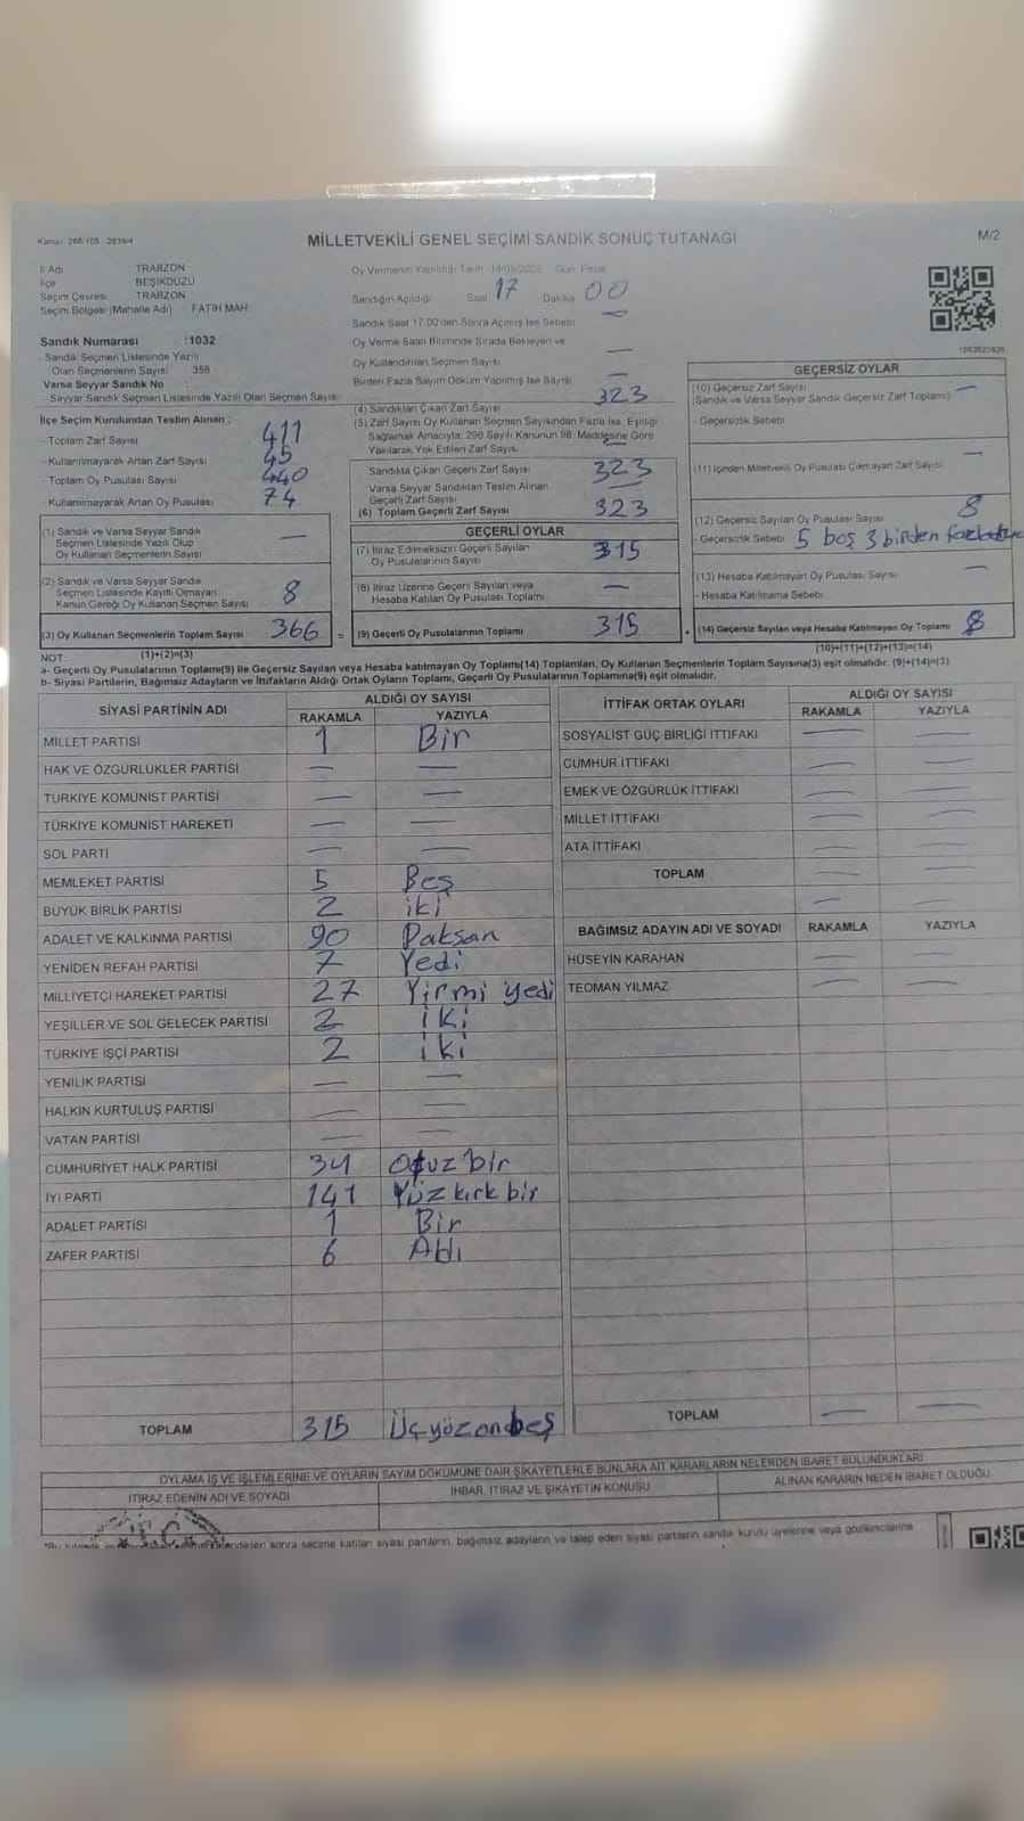 MİLLETVEKİLİ GENEL SEÇİMİ SANDIK SONUÇ TUTANAĞI
M/2
İl Adı TRABZON
İlçe BEŞİKDÜZÜ
Seçim Çevresi TRABZON
Seçim Bölgesi (Mahalle Adı) FATİH MAH
Sandık Numarası :1032
Sandık Seçmen Listesinde Yazılı
Olan Seçmenlerin Sayısı 358
Varsa Seyyar Sandık No
- Seyyar Sandık Seçmen Listesinde Yazılı Olan Seçmen Sayısı
İlçe Seçim Kurulundan Teslim Alınan :
- Toplam Zarf Sayısı 411
- Kullanılmayarak Artan Zarf Sayısı 45
- Toplam Oy Pusulası Sayısı 440
- Kullanılmayarak Artan Oy Pusulası 74
(1) Sandık ve Varsa Seyyar Sandık
Seçmen Listesinde Yazılı Olup
Oy Kullanan Seçmenlerin Sayısı —
(2) Sandık ve Varsa Seyyar Sandık
Seçmen Listesinde Kayıtlı Olmayan
Kanun Gereği Oy Kullanan Seçmen Sayısı 8
(3) Oy Kullanan Seçmenlerin Toplam Sayısı 366 =
(1)+(2)=(3)
Oy Vermenin Yapıldığı Tarih Gün Pazar
Sandığın Açıldığı Saat 17 Dakika 00
Sandık Saat 17.00'den Sonra Açılmış İse Sebebi —
Oy Verme Saati Bitiminde Sırada Bekleyen ve
Oy Kullandırılan Seçmen Sayısı —
Birden Fazla Sayım Döküm Yapılmış İse Sayısı —
(4) Sandıktan Çıkan Zarf Sayısı 323
(5) Zarf Sayısı Oy Kullanan Seçmen Sayısından Fazla İse, Eşitliği
Sağlamak Amacıyla, 298 Sayılı Kanunun 98. Maddesine Göre
Yakılarak Yok Edilen Zarf Sayısı —
Sandıkta Çıkan Geçerli Zarf Sayısı 323
Varsa Seyyar Sandıktan Teslim Alınan
Geçerli Zarf Sayısı —
(6) Toplam Geçerli Zarf Sayısı 323
GEÇERLİ OYLAR
(7) İtiraz Edilmeksizin Geçerli Sayılan
Oy Pusulalarının Sayısı 315
(8) İtiraz Üzerine Geçerli Sayılan veya
Hesaba Katılan Oy Pusulası Toplamı —
(9) Geçerli Oy Pusulalarının Toplamı 315
GEÇERSİZ OYLAR
(10) Geçersiz Zarf Sayısı —
(Sandık ve Varsa Seyyar Sandık Geçersiz Zarf Toplamı)
- Geçersizlik Sebebi
(11) İçinden Milletvekili Oy Pusulası Çıkmayan Zarf Sayısı —
(12) Geçersiz Sayılan Oy Pusulası Sayısı 8
- Geçersizlik Sebebi 5 boş 3 birden
(13) Hesaba Katılmayan Oy Pusulası Sayısı —
- Hesaba Katılmama Sebebi
(14) Geçersiz Sayılan veya Hesaba Katılmayan Oy Toplamı 8
(10)+(11)+(12)+(13)=(14)
NOT
a- Geçerli Oy Pusulalarının Toplamı(9) ile Geçersiz Sayılan veya Hesaba katılmayan Oy Toplamı(14) Toplamları, Oy Kullanan Seçmenlerin Toplam Sayısına(3) eşit olmalıdır. (9)+(14)=(3)
b- Siyasi Partilerin, Bağımsız Adayların ve İttifakların Aldığı Ortak Oyların Toplamı, Geçerli Oy Pusulalarının Toplamına(9) eşit olmalıdır.
SİYASİ PARTİNİN ADI ALDIĞI OY SAYISI
RAKAMLA YAZIYLA
MİLLET PARTİSİ 1 Bir
HAK VE ÖZGÜRLÜKLER PARTİSİ — —
TÜRKİYE KOMÜNİST PARTİSİ — —
TÜRKİYE KOMÜNİST HAREKETİ — —
SOL PARTİ — —
MEMLEKET PARTİSİ 5 Beş
BÜYÜK BİRLİK PARTİSİ 2 iki
ADALET VE KALKINMA PARTİSİ 90 Daksan
YENİDEN REFAH PARTİSİ 7 Yedi
MİLLİYETÇİ HAREKET PARTİSİ 27 Yirmi yedi
YEŞİLLER VE SOL GELECEK PARTİSİ 2 iki
TÜRKİYE İŞÇİ PARTİSİ 2 iki
YENİLİK PARTİSİ — —
HALKIN KURTULUŞ PARTİSİ — —
VATAN PARTİSİ — —
CUMHURİYET HALK PARTİSİ 31 Otuz bir
İYİ PARTİ 141 Yüz kırk bir
ADALET PARTİSİ 1 Bir
ZAFER PARTİSİ 6 Altı
TOPLAM 315 Üçyüzonbeş
İTTİFAK ORTAK OYLARI ALDIĞI OY SAYISI
RAKAMLA YAZIYLA
SOSYALİST GÜÇ BİRLİĞİ İTTİFAKI — —
CUMHUR İTTİFAKI — —
EMEK VE ÖZGÜRLÜK İTTİFAKI — —
MİLLET İTTİFAKI — —
ATA İTTİFAKI — —
TOPLAM — —
BAĞIMSIZ ADAYIN ADI VE SOYADI RAKAMLA YAZIYLA
HÜSEYİN KARAHAN — —
TEOMAN YILMAZ — —
TOPLAM — —
OYLAMA İŞ VE İŞLEMLERİNE VE OYLARIN SAYIM DÖKÜMÜNE DAİR ŞİKAYETLERLE BUNLARA AİT KARARLARIN NELERDEN İBARET BULUNDUKLARI
İTİRAZ EDENİN ADI VE SOYADI
İHBAR, İTİRAZ VE ŞİKAYETİN KONUSU
ALINAN KARARIN NEDEN İBARET OLDUĞU
sonra seçime katılan siyasi partilerin, bağımsız adayların ve talep eden siyasi partilerin sandık kurulu üyelerine veya gözlemcilerine